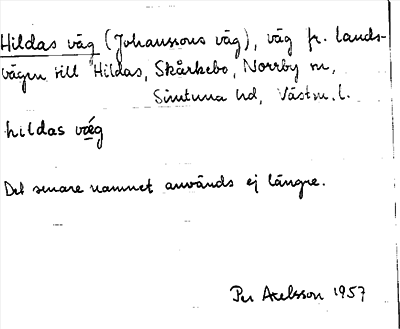 Hildas väg (Johanssons väg), väg fr. lands-
vägen till Hildas, Skårkebo, Norrby sn,
Simtuna hd, Västm. l.
hildas væg
Det senare namnet används ej längre.
Per Axelsson 1957